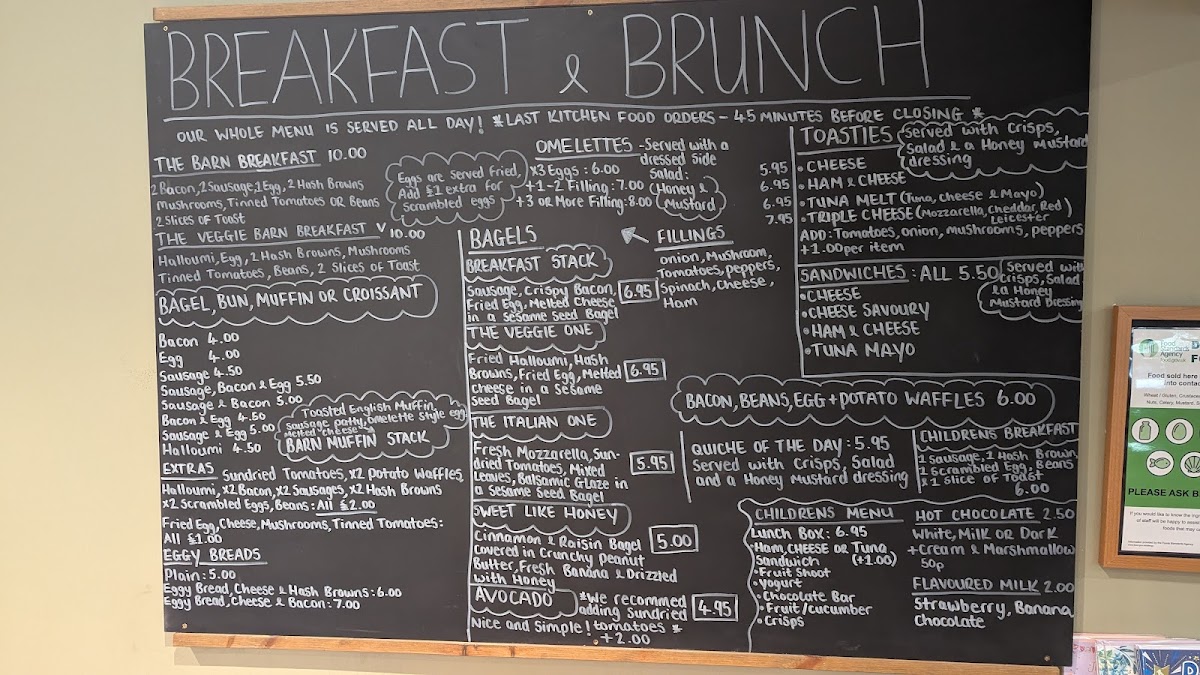 BREAKFAST & BRUNCH
OUR WHOLE MENU IS SERVED ALL DAY! *LAST KITCHEN FOOD ORDERS - 45 MINUTES BEFORE CLOSING *
THE BARN BREAKFAST 10.00
2 Bacon, 2 Sausage, 1 Egg, 2 Hash Browns
Mushrooms, Tinned Tomatoes OR Beans
2 Slices of Toast
Eggs are Served Fried,
Add £1 extra for
Scrambled eggs
THE VEGGIE BARN BREAKFAST V 10.00
Halloumi, Egg, 2 Hash Browns, Mushrooms
Tinned Tomatoes, Beans, 2 Slices of Toast
BAGEL, BUN, MUFFIN OR CROISSANT
Bacon 4.00
Egg 4.00
Sausage 4.50
Sausage, Bacon & Egg 5.50
Sausage & Bacon 5.00
Bacon & Egg 4.50
Sausage & Egg 5.00
Halloumi 4.50
Toasted English Muffin,
Sausage patty, Omelette Style egg,
Melted cheese
BARN MUFFIN STACK
EXTRAS Sundried Tomatoes, x2 Potato Waffles,
Halloumi, x2 Bacon, x2 Sausages, x2 Hash Browns
x2 Scrambled Eggs, Beans: All £2.00
Fried Egg, Cheese, Mushrooms, Tinned Tomatoes:
All £1.00
EGGY BREADS
Plain: 5.00
Eggy Bread, Cheese & Hash Browns: 6.00
Eggy Bread, Cheese & Bacon: 7.00
OMELETTES - Served with a
dressed Side
Salad:
(Honey &
Mustard)
x3 Eggs: 6.00
+1-2 Filling: 7.00
+3 or More Filling: 8.00
FILLINGS
onion, Mushroom,
Tomatoes, peppers,
Spinach, Cheese,
Ham
BAGELS
BREAKFAST STACK
Sausage, Crispy Bacon,
Fried Egg, Melted Cheese
in a Sesame Seed Bagel
6.95
THE VEGGIE ONE
Fried Halloumi, Hash
Browns, Fried Egg, Melted
cheese in a Sesame
Seed Bagel
6.95
THE ITALIAN ONE
Fresh Mozzarella, Sun-
dried Tomatoes, Mixed
Leaves, Balsamic Glaze in
a Sesame Seed Bagel
5.95
SWEET LIKE HONEY
Cinnamon & Raisin Bagel
Covered in Crunchy Peanut
Butter, Fresh Banana & Drizzled
with Honey
5.00
AVOCADO
Nice and Simple!
*We recommed
adding Sundried
tomatoes *
+2.00
4.95
TOASTIES
Served with crisps,
Salad & a Honey Mustard
dressing
5.95 • CHEESE
6.95 • HAM & CHEESE
6.95 • TUNA MELT (Tuna, cheese & Mayo)
7.95 • TRIPLE CHEESE (Mozzarella, Cheddar, Red
Leicester)
ADD: Tomatoes, onion, mushrooms, peppers
+1.00 per item
SANDWICHES: ALL 5.50
Served with
crisps, Salad
& a Honey
Mustard Dressing
• CHEESE
• CHEESE SAVOURY
• HAM & CHEESE
• TUNA MAYO
BACON, BEANS, EGG + POTATO WAFFLES 6.00
QUICHE OF THE DAY: 5.95
Served with Crisps, Salad
and a Honey Mustard dressing
CHILDRENS BREAKFAST
1 Sausage, 1 Hash Brown,
1 Scrambled Egg, Beans
& 1 Slice of Toast
6.00
CHILDRENS MENU
Lunch Box: 6.95
Ham, CHEESE OR Tuna
Sandwich (+1.00)
• Fruit Shoot
• Yogurt
• Chocolate Bar
• Fruit/cucumber
• Crisps
HOT CHOCOLATE 2.50
White, Milk OR Dark
+ Cream & Marshmallow
50p
FLAVOURED MILK 2.00
Strawberry, Banana,
Chocolate
Food
Standards
Agency
Food sold here
into conta
PLEASE ASK B
If you would like to know the ingr
of staff will be happy to
foods that may